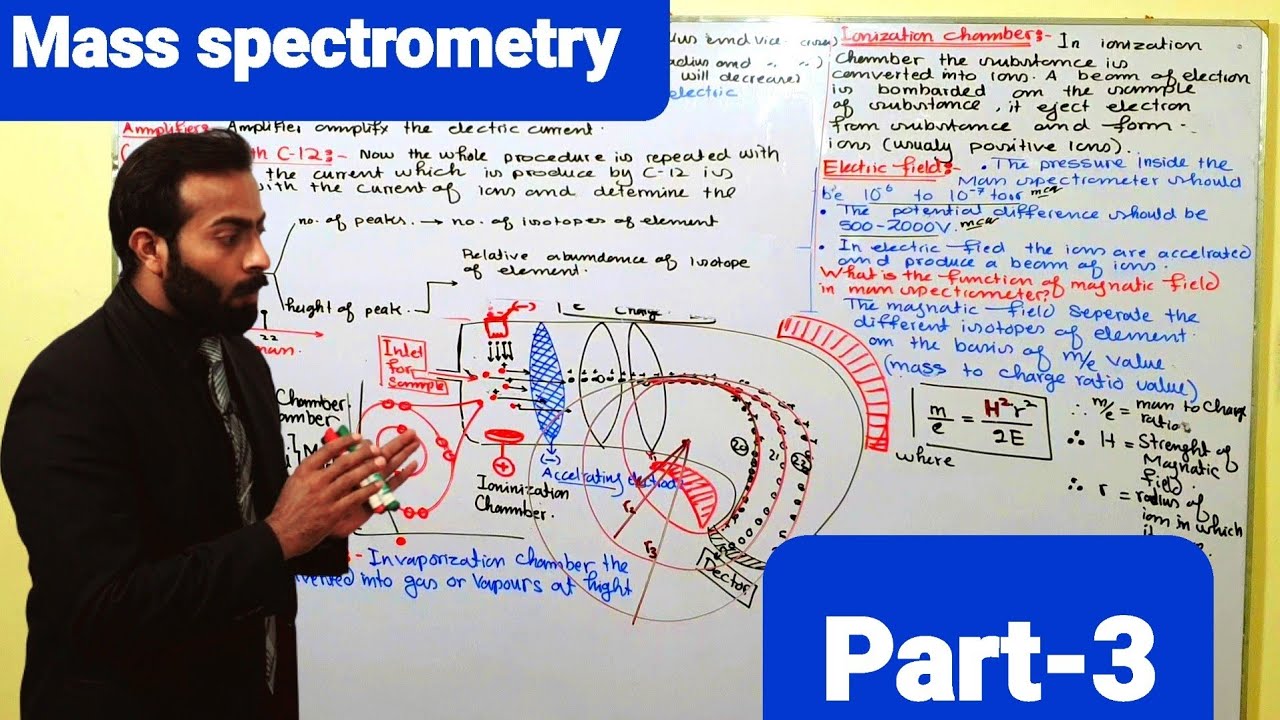 Mass spectrometry
will decrease
electric
Amplifier:- Amplifier amplifx the electric current.
th C-12:- Now the whole procedure is repeated with
the current which is produce by C-12 is
with the current of ions and determine the
no. of peaks. → no. of isotopes of element
Relative abundance of isotope
of element.
height of peak.
22
mass.
Inlet
for
sample
Chamber
(-)
Accelrating electrode
Ioninization
Chammber.
+
20
21
22
r3
Dector
:- In vaporization chamber the
into gas or vapours at hight
Ionization chamber:- In ionization
chamber the substance is
converted into ions. A beam of electron
is bombarded on the sample
of substance, it eject electron
from substance and form
ions (usualy positive ions).
Electric field:- • The pressure inside the
Mass spectrometer should
be 10⁻⁶ to 10⁻⁷ torr mcq
• The potential difference should be
500-2000V. mcq
• In electric fied the ions are accelrated
and produce a beam of ions.
What is the function of magnatic field
in mass spectrometer?
The magnatic field seperate the
different isotopes of element
on the basis of m/e value
(mass to charge ratio value)
m/e = H²r²/2E
where
∴ m/e = mass to charge
ratio
∴ H = Strenght of
Magnatic
field.
∴ r = radius of
ion in which
it
Part-3